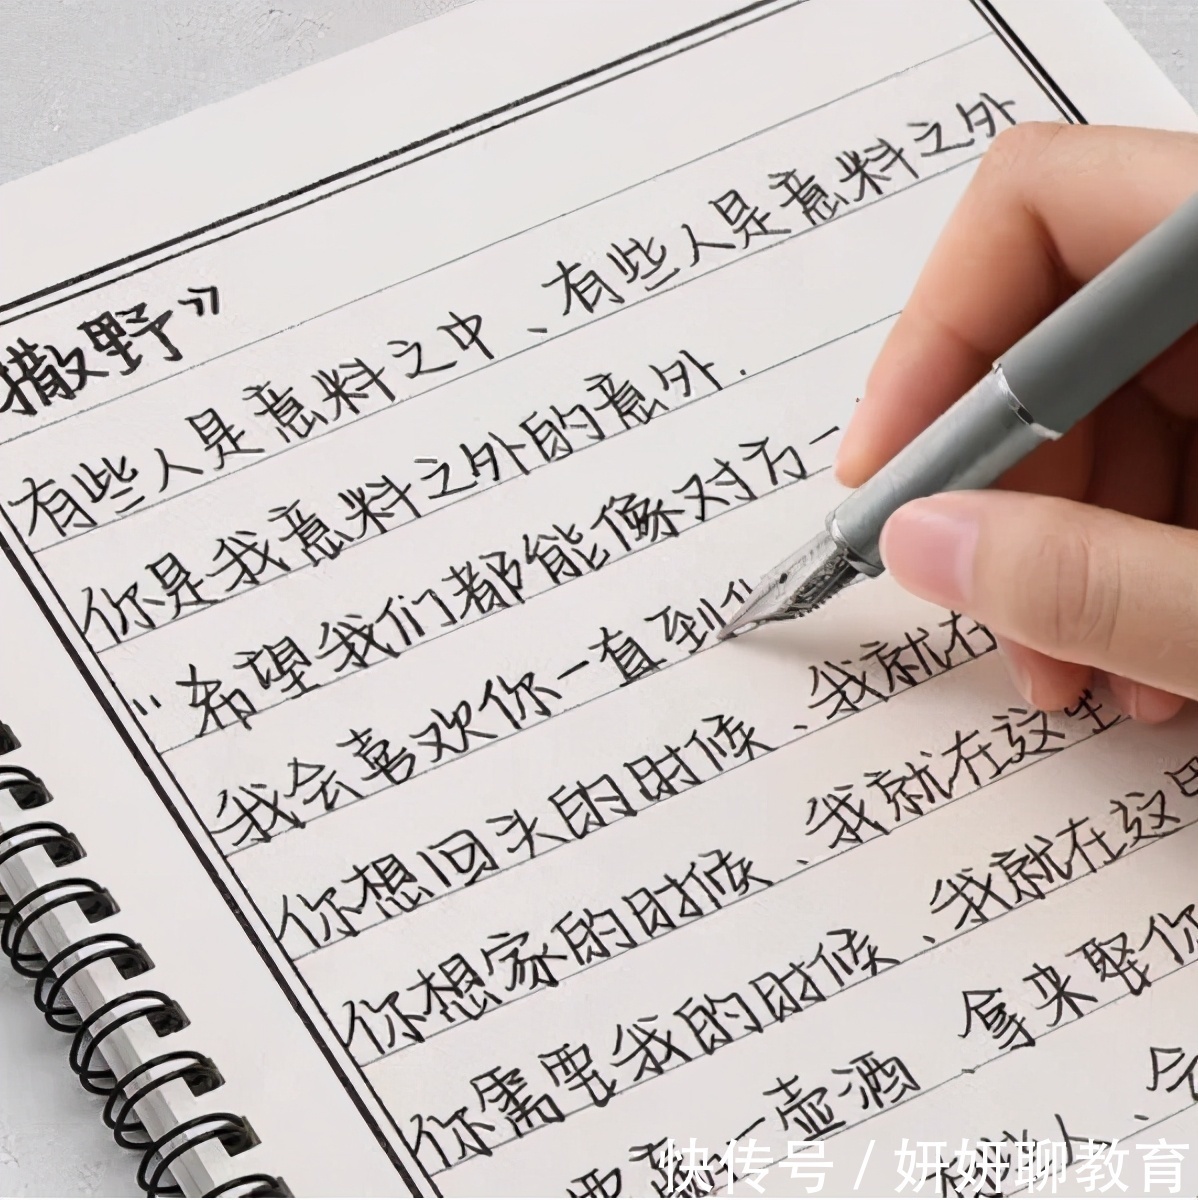 撒野》
有些人是意料之中、有些人是意料之外
你是我意料之外的意外.
"希望我们都能像对方一
我会喜欢你一直到
你想回头的时候、我就在
你想家的时候、我就在这里
你需要我的时候、我就在这里
一壶酒 拿来娶你
人、会
快传号 / 妍妍聊教育